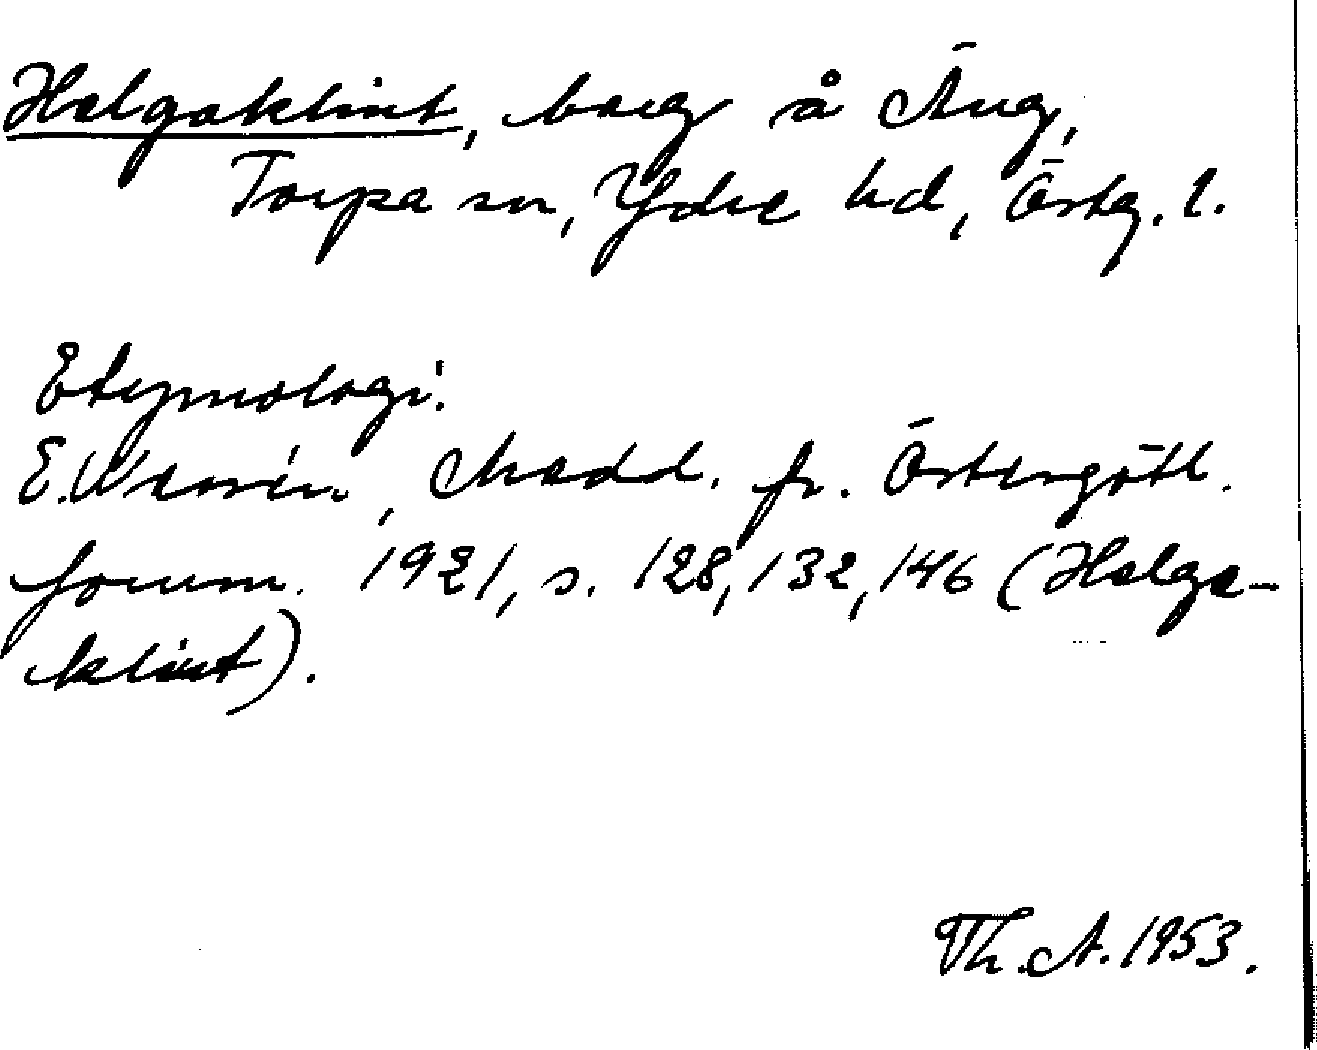 Helgaklint, berg å Äng,
Torpa sn, Ydre hd, Östg. l.
Etymologi:
E. Wessén, Medd. fr. Östergötl.
fornm. 1921, s. 128, 132, 146 (Helga-
klint).
Th. A. 1953.